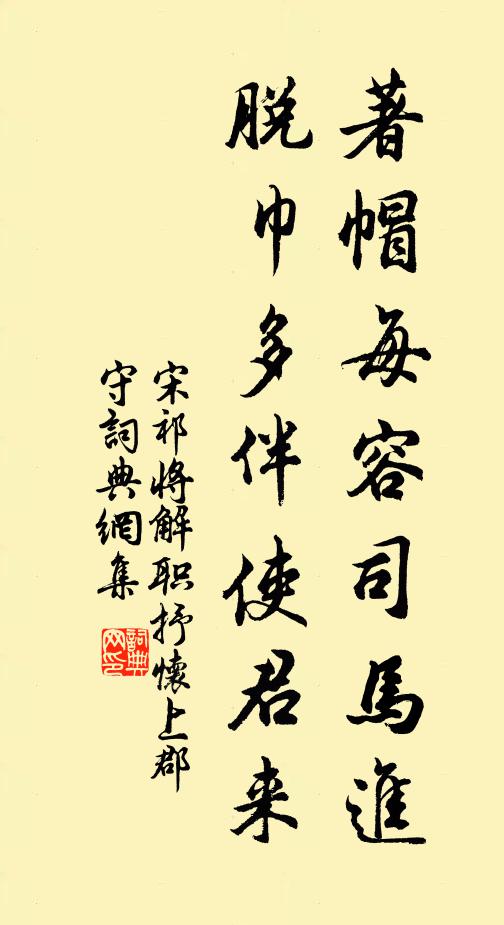 著帽每容司馬進
脱巾多伴使君来
宋祁將解职抒懷上郡
守詞典網集
詞典网印